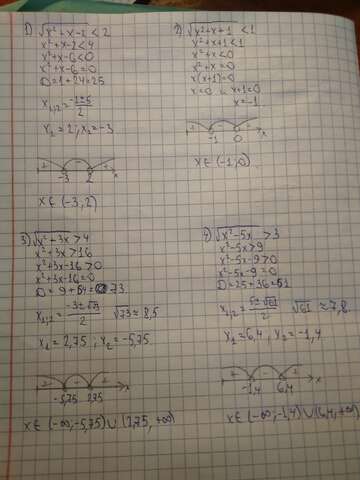 1) √x²+x-2 < 2
x²+x-2<4
x²+x-6<0
x²+x-6=0
D=1+24=25
x₁,₂= -1±5/2
x₁=2; x₂=-3
+ - +
-3 2 x
x∈(-3,2)
2) √x²+x+1 <1
x²+x+1<1
x²+x<0
x²+x=0
x(x+1)=0
x=0 x+1=0
x=-1
-1 0 x
x∈(-1,0)
3) √x²+3x >4
x²+3x>16
x²+3x-16>0
x²+3x-16=0
D=9+64=73
x₁,₂= -3±√73/2 √73≈8,5
x₁=2,75; x₂=-5,75
+ - +
-5,75 2,75 x
x∈(-∞,-5,75)∪(2,75,+∞)
4) √x²-5x >3
x²-5x>9
x²-5x-9>0
x²-5x-9=0
D=25+36=61
x₁,₂= 5±√61/2 √61≈7,8
x₁=6,4, x₂=-1,4
+ - +
-1,4 6,4 x
x∈(-∞,-1,4)∪(6,4,+∞)